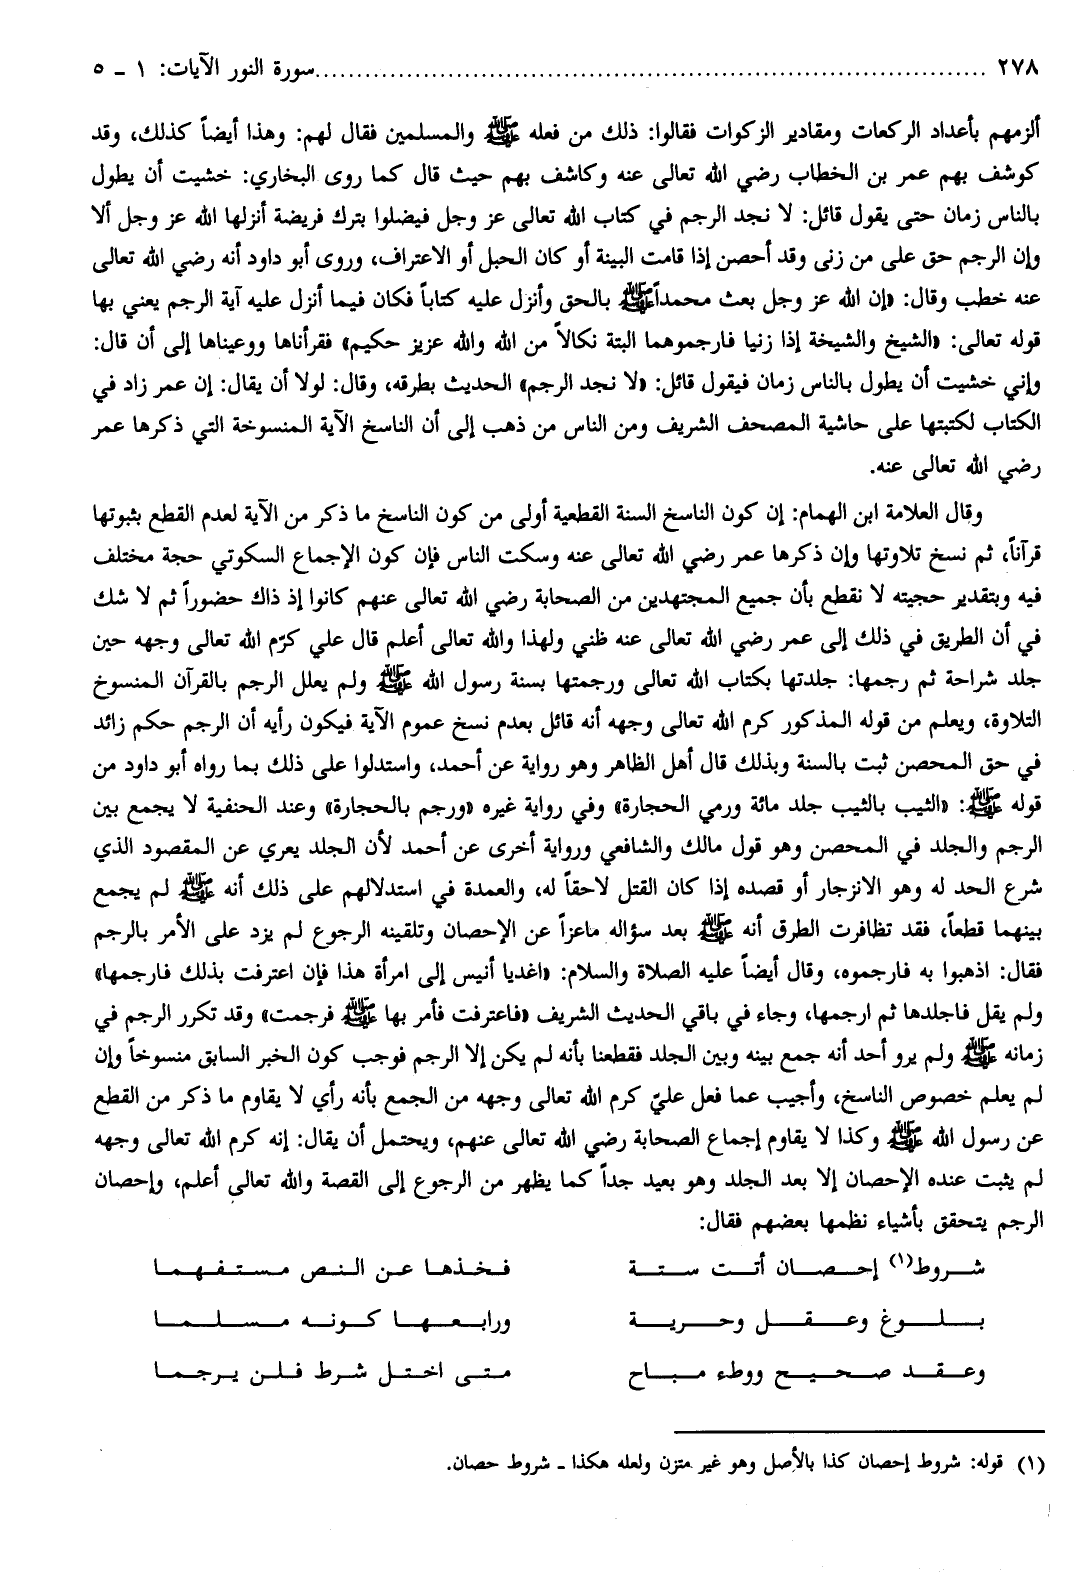 ٢٧٨ ........................................................................................ سورة النور الآيات: ١ ـ ٥
ألزمهم بأعداد الركعات ومقادير الزكوات فقالوا: ذلك من فعله ﷺ والمسلمين فقال لهم: وهذا أيضاً كذلك، وقد
كوشف بهم عمر بن الخطاب رضي الله تعالى عنه وكاشف بهم حيث قال كما روى البخاري: خشيت أن يطول
بالناس زمان حتى يقول قائل: لا نجد الرجم في كتاب الله تعالى عز وجل فيضلوا بترك فريضة أنزلها الله عز وجل ألا
وإن الرجم حق على من زنى وقد أحصن إذا قامت البينة أو كان الحبل أو الاعتراف، وروى أبو داود أنه رضي الله تعالى
عنه خطب وقال: «إن الله عز وجل بعث محمداً ﷺ بالحق وأنزل عليه كتاباً فكان فيما أنزل عليه آية الرجم يعني بها
قوله تعالى: «الشيخ والشيخة إذا زنيا فارجموهما البتة نكالاً من الله والله عزيز حكيم» فقرأناها ووعيناها إلى أن قال:
وإني خشيت أن يطول بالناس زمان فيقول قائل: «لا نجد الرجم» الحديث بطرقه، وقال: لولا أن يقال: إن عمر زاد في
الكتاب لكتبتها على حاشية المصحف الشريف ومن الناس من ذهب إلى أن الناسخ الآية المنسوخة التي ذكرها عمر
رضي الله تعالى عنه.
وقال العلامة ابن الهمام: إن كون الناسخ السنة القطعية أولى من كون الناسخ ما ذكر من الآية لعدم القطع بثبوتها
قرآناً، ثم نسخ تلاوتها وإن ذكرها عمر رضي الله تعالى عنه وسكت الناس فإن كون الإجماع السكوتي حجة مختلف
فيه وبتقدير حجيته لا نقطع بأن جميع المجتهدين من الصحابة رضي الله تعالى عنهم كانوا إذ ذاك حضوراً ثم لا شك
في أن الطريق في ذلك إلى عمر رضي الله تعالى عنه ظني ولهذا والله تعالى أعلم قال علي كرّم الله تعالى وجهه حين
جلد شراحة ثم رجمها: جلدتها بكتاب الله تعالى ورجمتها بسنة رسول الله ﷺ ولم يعلل الرجم بالقرآن المنسوخ
التلاوة، ويعلم من قوله المذكور كرم الله تعالى وجهه أنه قائل بعدم نسخ عموم الآية فيكون رأيه أن الرجم حكم زائد
في حق المحصن ثبت بالسنة وبذلك قال أهل الظاهر وهو رواية عن أحمد، واستدلوا على ذلك بما رواه أبو داود من
قوله ﷺ: «الثيب بالثيب جلد مائة ورمي الحجارة» وفي رواية غيره «ورجم بالحجارة» وعند الحنفية لا يجمع بين
الرجم والجلد في المحصن وهو قول مالك والشافعي ورواية أخرى عن أحمد لأن الجلد يعري عن المقصود الذي
شرع الحد له وهو الانزجار أو قصده إذا كان القتل لاحقاً له، والعمدة في استدلالهم على ذلك أنه ﷺ لم يجمع
بينهما قطعاً، فقد تظافرت الطرق أنه ﷺ بعد سؤاله ماعزاً عن الإحصان وتلقينه الرجوع لم يزد على الأمر بالرجم
فقال: اذهبوا به فارجموه، وقال أيضاً عليه الصلاة والسلام: «اغديا أنيس إلى امرأة هذا فإن اعترفت بذلك فارجمها»
ولم يقل فاجلدها ثم ارجمها، وجاء في باقي الحديث الشريف «فاعترفت فأمر بها ﷺ فرجمت» وقد تكرر الرجم في
زمانه ﷺ ولم يرو أحد أنه جمع بينه وبين الجلد فقطعنا بأنه لم يكن إلا الرجم فوجب كون الخبر السابق منسوخاً وإن
لم يعلم خصوص الناسخ، وأجيب عما فعل عليّ كرم الله تعالى وجهه من الجمع بأنه رأي لا يقاوم ما ذكر من القطع
عن رسول الله ﷺ وكذا لا يقاوم إجماع الصحابة رضي الله تعالى عنهم، ويحتمل أن يقال: إنه كرم الله تعالى وجهه
لم يثبت عنده الإحصان إلا بعد الجلد وهو بعيد جداً كما يظهر من الرجوع إلى القصة والله تعالى أعلم، وإحصان
الرجم يتحقق بأشياء نظمها بعضهم فقال:
شروط(١) إحصان أتت ستة فخذها عن النص مستفهما
بلوغ وعقل وحرية ورابعها كونه مسلما
وعقد صحيح ووطء مباح متى اختل شرط فلن يرجما
(١) قوله: شروط إحصان كذا بالأصل وهو غير متزن ولعله هكذا ـ شروط حصان.